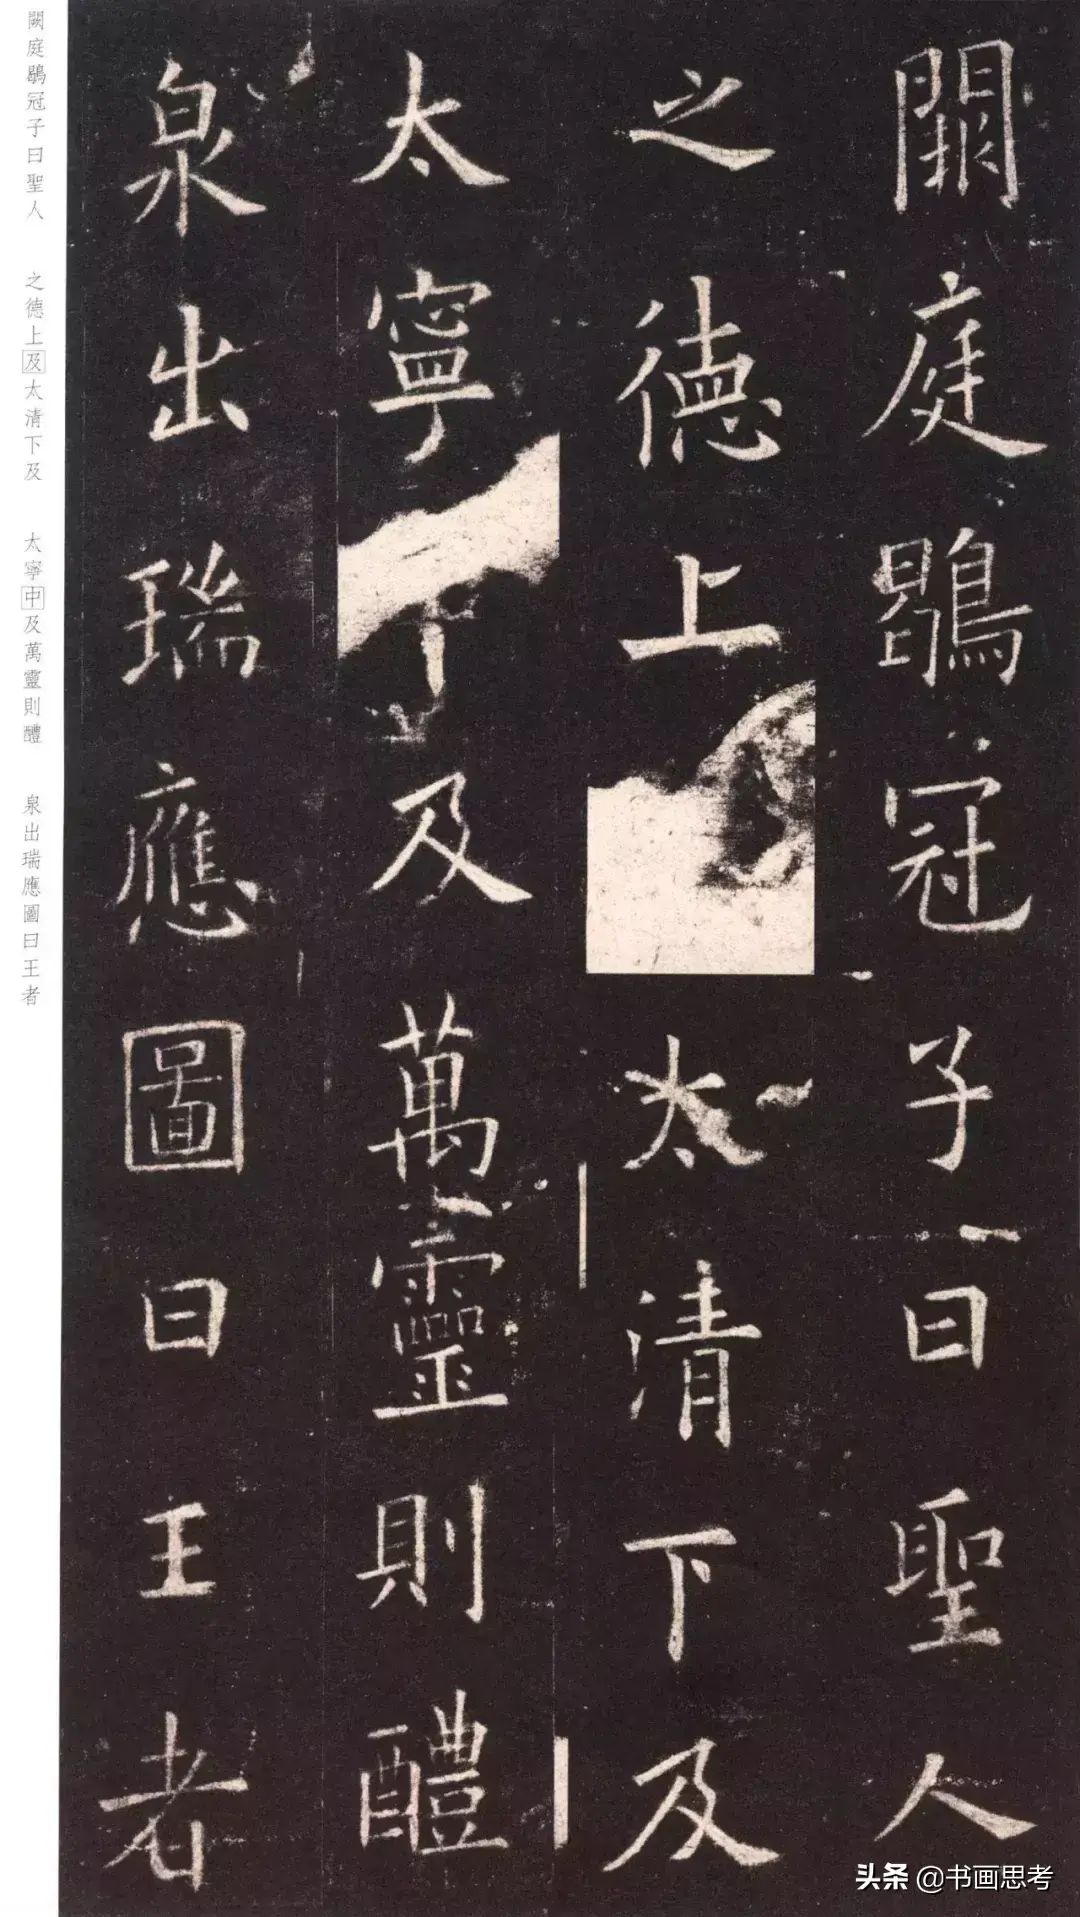 闕庭鶡冠子曰聖人
之德上太清下及
太寧中及萬靈則醴
泉出瑞應圖曰王者
闕庭鶡冠子曰聖人 之德上及太清下及 太寧中及萬靈則醴 泉出瑞應圖曰王者
头条 @书画思考